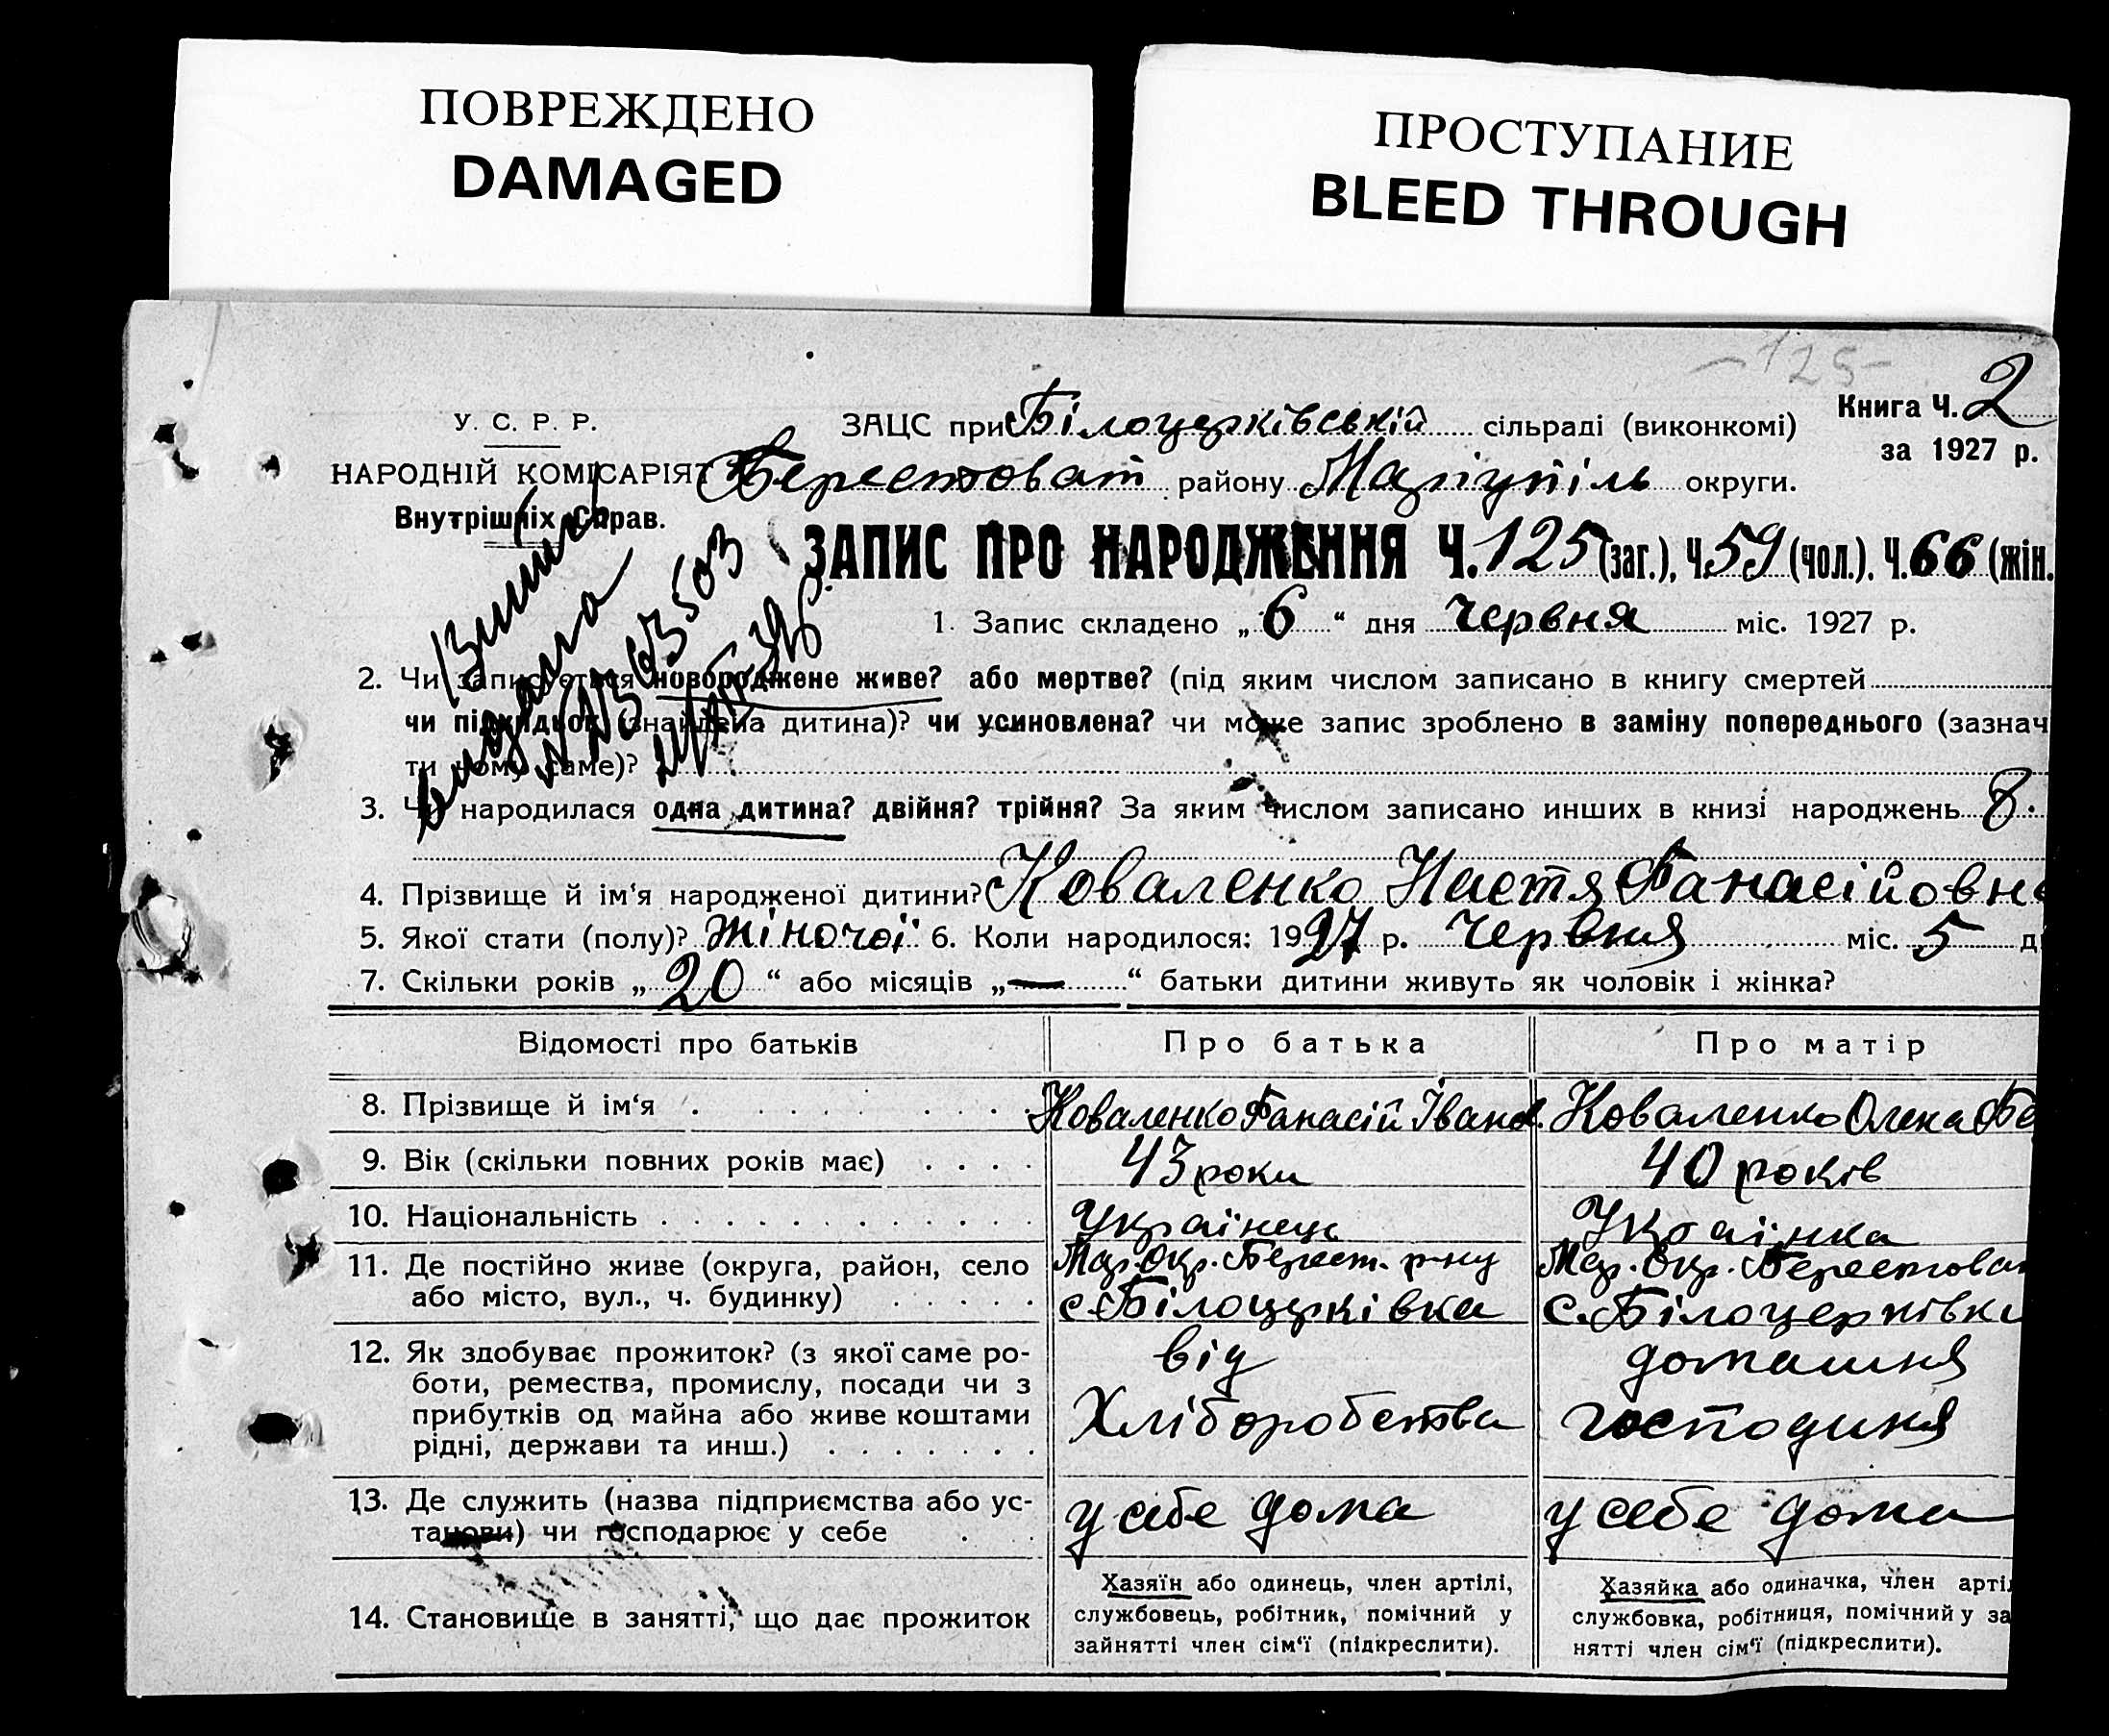 ПОВРЕЖДЕНО
DAMAGED
ПРОСТУПАНИЕ
BLEED THROUGH
-125-
У. С. Р. Р.
НАРОДНІЙ КОМІСАРІЯТ
Внутрішніх Справ.
ЗАЦС при Білоцерківській сільраді (виконкомі)
Книга Ч. 2
за 1927 р.
Берестоват району Маріупіль округи.
ЗАПИС ПРО НАРОДЖЕННЯ Ч. 125 (заг.), Ч. 59 (чол.). Ч. 66 (жін.
1. Запис складено „ 6 “ дня Червня міс. 1927 р.
видана
2. Чи записується новороджене живе? або мертве? (під яким числом записано в книгу смертей
чи підкидьок (знайдена дитина)? чи усиновлена? чи може запис зроблено в заміну попереднього (зазнач
ти чому саме)?
3. Чи народилася одна дитина? двійня? трійня? За яким числом записано инших в книзі народжень
4. Прізвище й ім‘я народженої дитини? Коваленко Настя Фанасійовна
5. Якої стати (полу)? Жіночої 6. Коли народилося: 1927 р. Червня міс. 5 д
7. Скільки років „ 20 “ або місяців „ — “ батьки дитини живуть як чоловік і жінка?
Відомості про батьків
Про батька
Про матір
8. Прізвище й ім‘я
Коваленко Фанасій Іванов.
Коваленко Олена
9. Вік (скільки повних років має)
43 роки
40 років
10. Національність
Українець
Українка
11. Де постійно живе (округа, район, село
або місто, вул., ч. будинку)
Мар. Окр. Берест. р-ну
с. Білоцерківка
Мар. Окр. Берестоват
с. Білоцерківка
12. Як здобуває прожиток? (з якої саме ро-
боти, ремества, промислу, посади чи з
прибутків од майна або живе коштами
рідні, держави та инш.)
від
Хліборобства
домашня
господиня
13. Де служить (назва підприємства або ус-
танови) чи господарює у себе
у себе дома
у себе дома
14. Становище в занятті, що дає прожиток
Хазяїн або одинець, член артілі,
службовець, робітник, помічний у
зайнятті член сім‘ї (підкреслити).
Хазяйка або одиначка, член артіл
службовка, робітниця, помічний у за
нятті член сім‘ї (підкреслити).